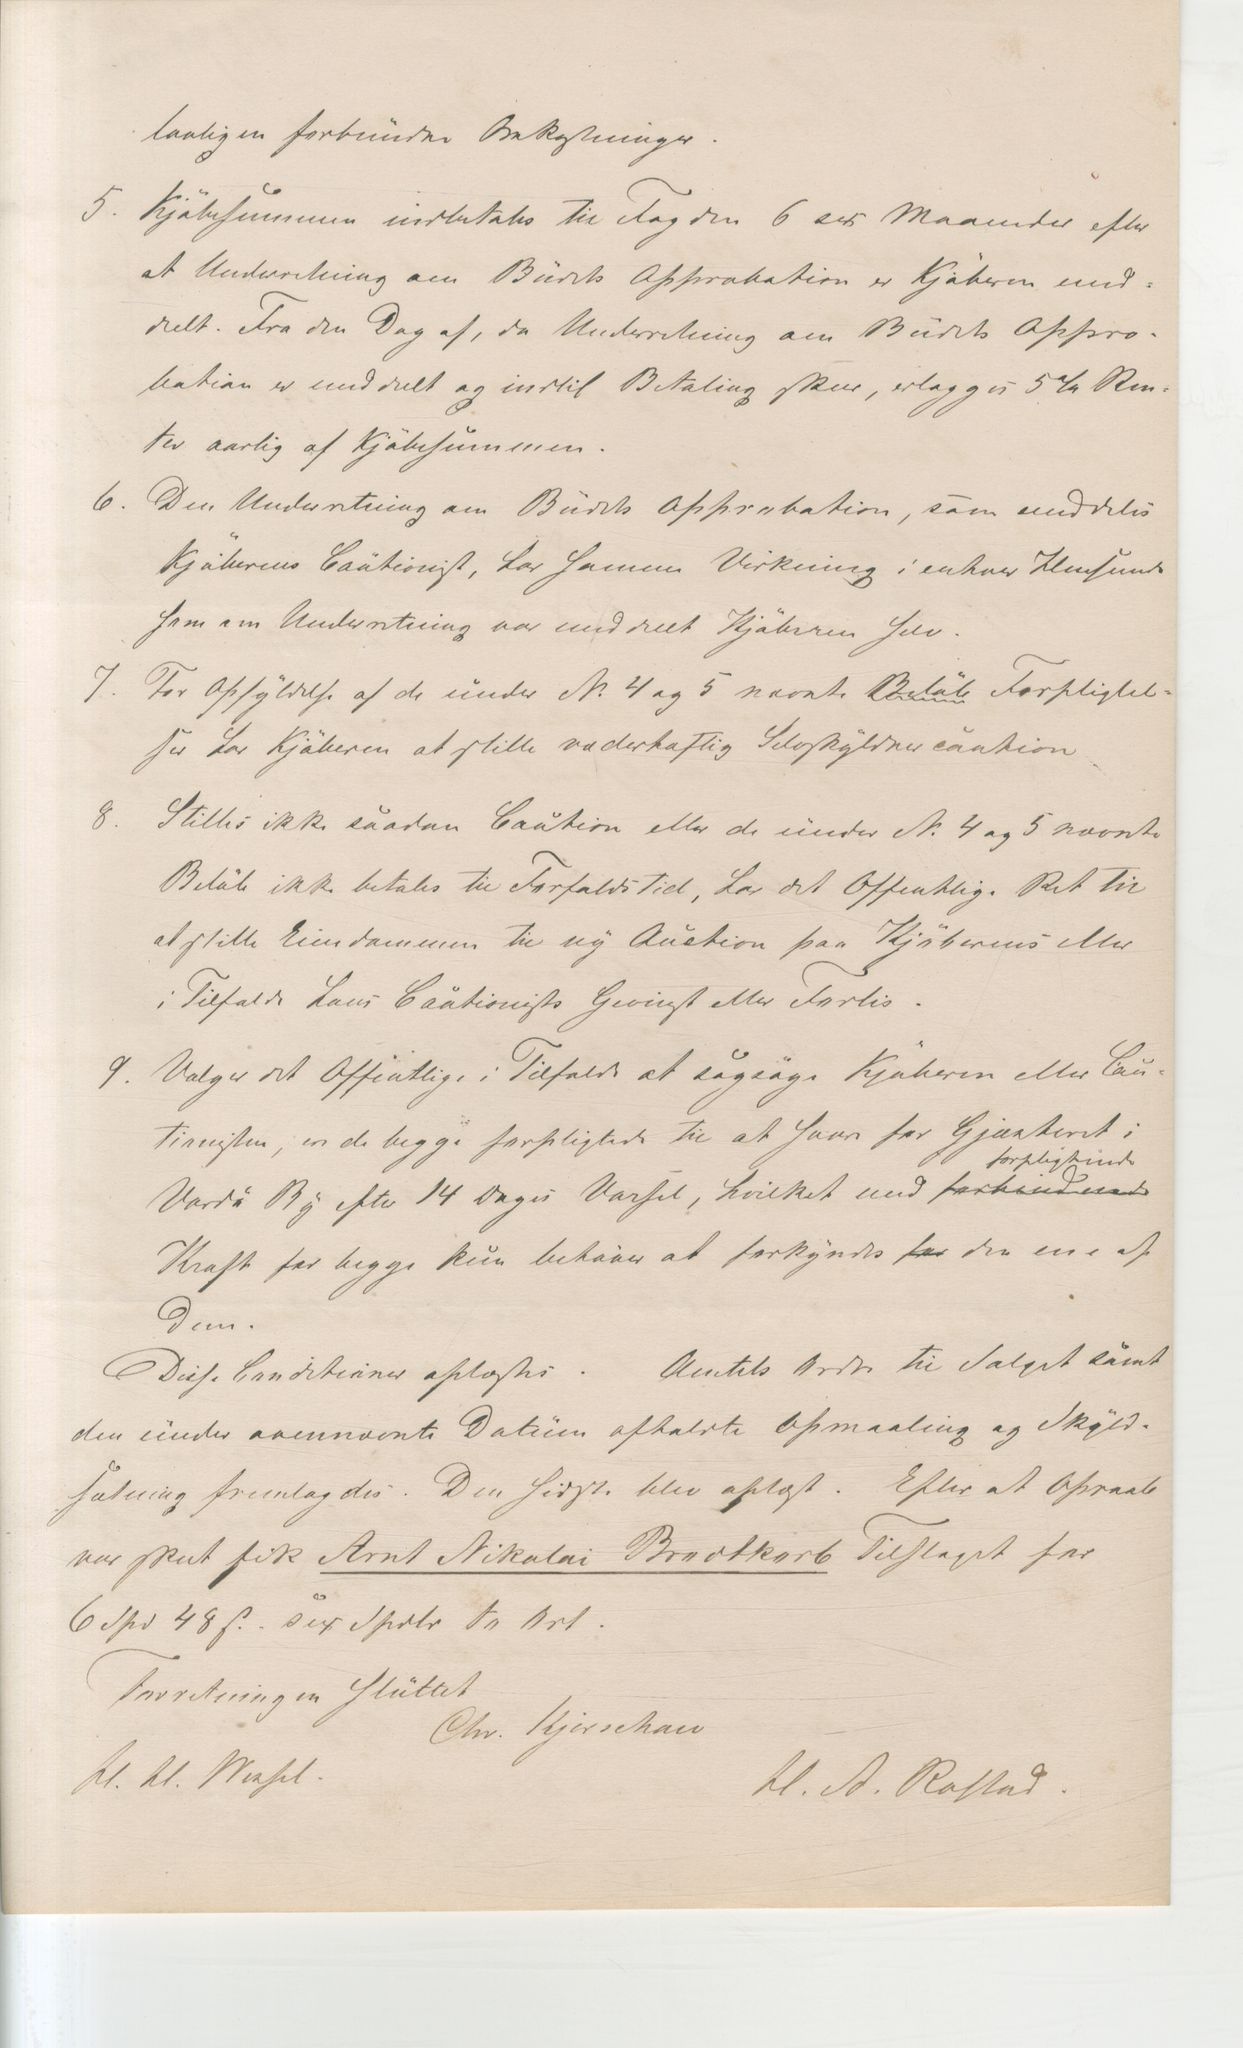 lovligen forbundne Bekostninger.
5. Kjöbesummen indbetales til Fogden 6 sex Maaneder efter
at Underretning om Budets Approbation er Kjöberen med-
delt. Fra den Dag af, da Underretning om Budets Appro-
bation er meddelt og indtil Betaling skeer, erlægges 5 % Ren-
ter aarlig af Kjöbesummen.
6. Den Underretning om Budets Approbation, som meddeles
Kjöberens Cautionist, har samme Virkning i enhver Henseende
som om Underretning var meddeelt Kjöberen selv.
7. For Opfyldelse af de under N. 4 og 5 nævnte Belöb Forpligtel-
ser har Kjöberen at stille vederhæftig Selvskyldnercaution
8. Stilles ikke saadan Caution eller de under N. 4 og 5 nævnte
Belöb ikke betales til Forfaldstid, har det Offentlige Ret til
at stille Eiendommen til ny Auction paa Kjöberens eller
i Tilfælde hans Cautionists Gevinst eller Forlis.
9. Vælger det Offentlige i Tilfælde at sagsöge Kjöberen eller Cau-
tionisten, ere de begge forpligtede til at svare for Gjæsteret i
forpligtende
Vardö By efter 14 Dages Varsel, hvilket med forbindende
Kraft for begge kun behöver at forkyndes for den ene af
Dem.
Disse Conditioner oplæstes. Amtets Ordre til Salget samt
den under ovennævnte Datum afholdte Opmaaling og Skyld-
sætning fremlagdes. Den sidste blev oplæst. Efter at Opraab
var skeet fik Arnt Nikolai Brodtkorb Tilslaget for
6 Spd 48 ß. sex Spdlr to Ort.
Forretningen sluttet
Chr. Kjerschow
H. H. Wessel.
H. A. Rastad.